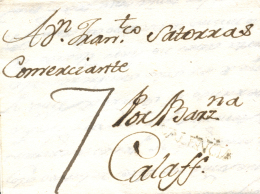 A Dn. Franco. Satorras
Comerciante
7 Por Barna
Calaff.